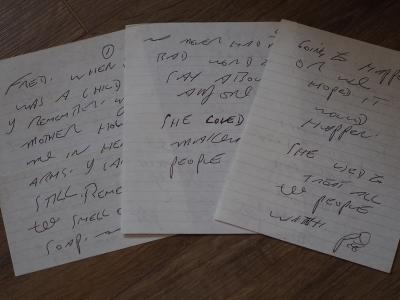 ①
FRED. WHEN
WAS A CHILD
Y REMEMBER
MOTHER HO
ME IN HE
ARMS. Y CA
STILL REME
THE SMELL
SOAP.
NEVER HAD
BAD WORD
SAY ABOU
ANYONE
SHE LOVED
PEOPLE
GOING TO HAPPE
OR WE
HOPED IT
WOULD
HAPPEN.
SHE USED TO
TREAT ALL
THE PEOPLE
WITH